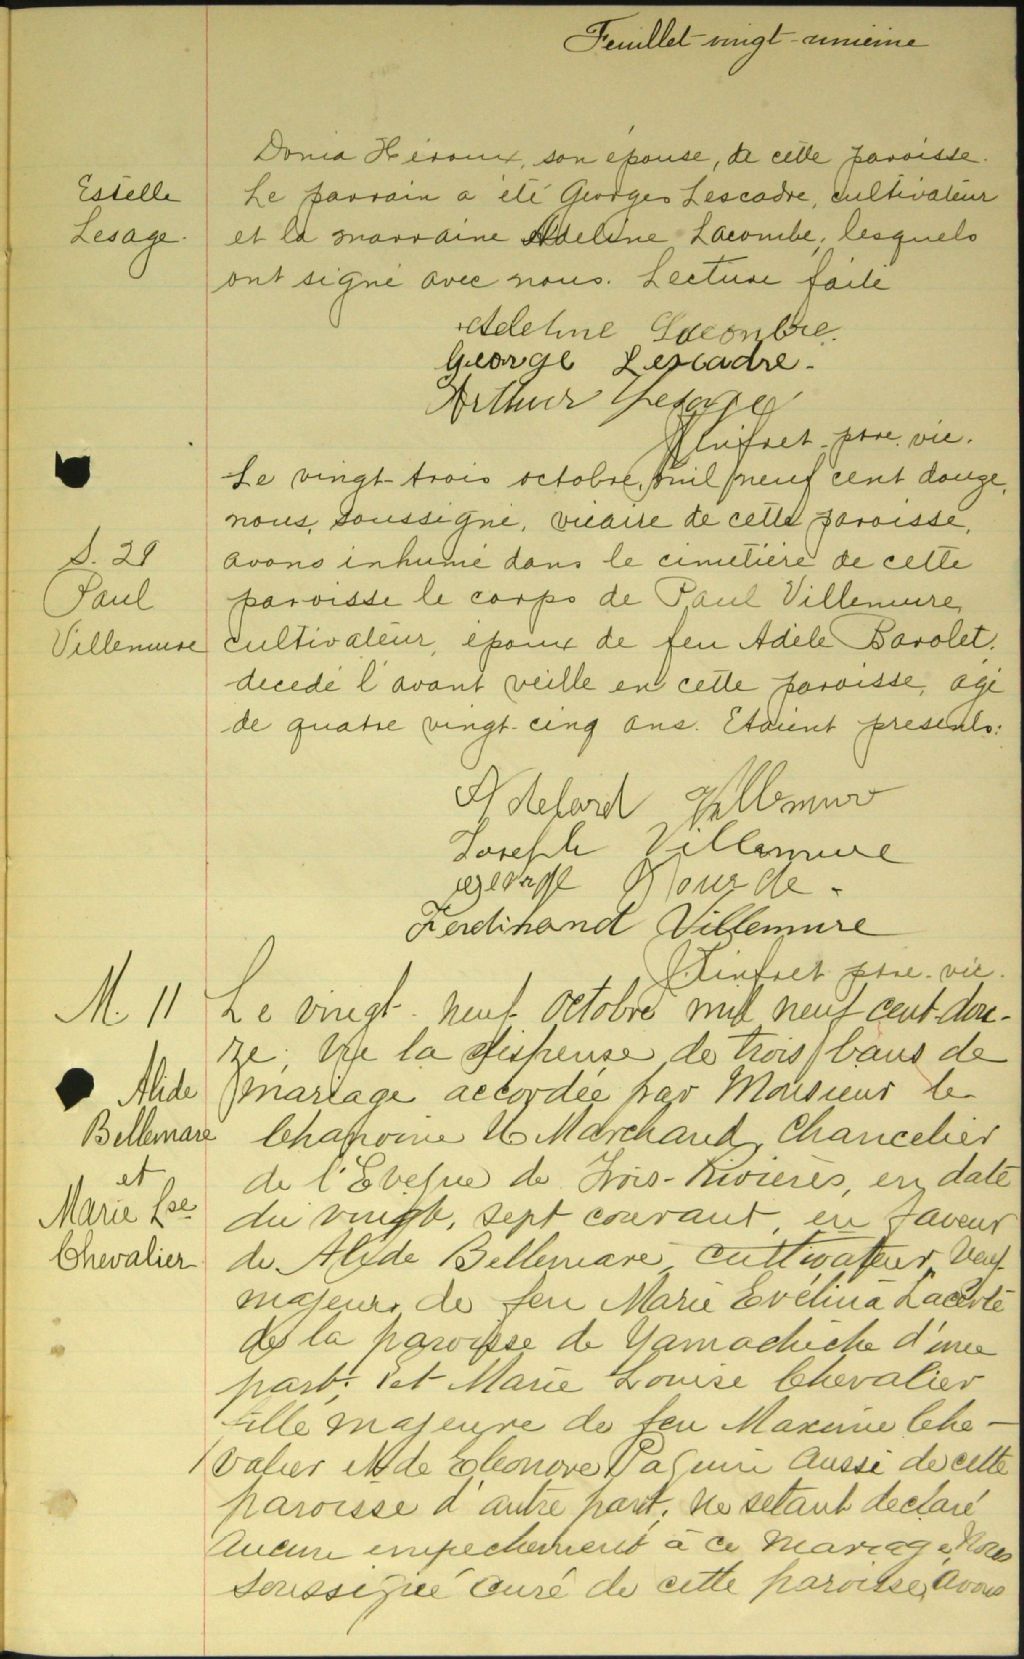 Feuillet vingt-unième
Estelle
Lesage.
Donia Héroux, son épouse, de cette paroisse.
Le parrain a été Georges Lescadre, cultivateur
et la marraine Adeline Lacombe, lesquels
ont signé avec nous. Lecture faite
Adeline Lacombre.
George Lescadre.
Arthur Lesage
Rinfret ptre. vic.
S. 29
Paul
Villemure
Le vingt-trois octobre, mil neuf cent douze,
nous, soussigné, vicaire de cette paroisse,
avons inhumé dans le cimetière de cette
paroisse le corps de Paul Villemure,
cultivateur, époux de feu Adèle Barolet,
décédé l'avant veille en cette paroisse, âgé
de quatre vingt-cinq ans. Etaient présents:
Adelard Villemur
Joseph Villemure
George
Ferdinand Villemure
Rinfret ptre. vic.
M. 11
Alide
Bellemare
et
Marie Lse
Chevalier
Le vingt-neuf octobre mil neuf cent-dou-
ze, Vu la dispense de trois bans de
mariage accordée par Monsieur le
Chanoine U Marchand, Chancelier
de l'Evêque de Trois-Rivières, en date
du vingt, sept courant, en faveur
de Alide Bellemare, cultivateur, Veuf
majeur, de feu Marie Evélina Lacerte
de la paroisse de Yamachiche d'une
part; et Marie Louise Chevalier
fille majeure de feu Maxime Che-
valier et de Eléonore Paquin aussi de cette
paroisse d'autre part; ne setant déclaré
aucun empêchement à ce mariage, Nous
soussigné curé de cette paroisse, avons